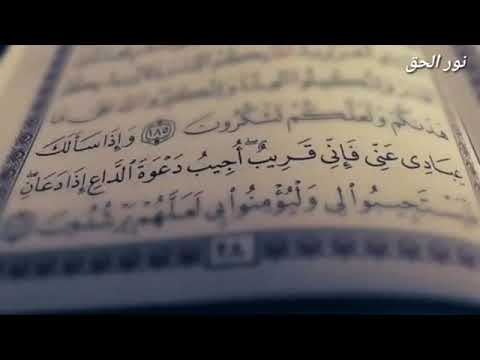 نور الحق
هَدَىٰكُمْ وَلَعَلَّكُمْ تَشْكُرُونَ ١٨٥ وَإِذَا سَأَلَكَ
عِبَادِى عَنِّى فَإِنِّى قَرِيبٌ ۖ أُجِيبُ دَعْوَةَ ٱلدَّاعِ إِذَا دَعَانِ ۖ
فَلْيَسْتَجِيبُوا۟ لِى وَلْيُؤْمِنُوا۟ بِى لَعَلَّهُمْ يَرْشُدُونَ
٢٨